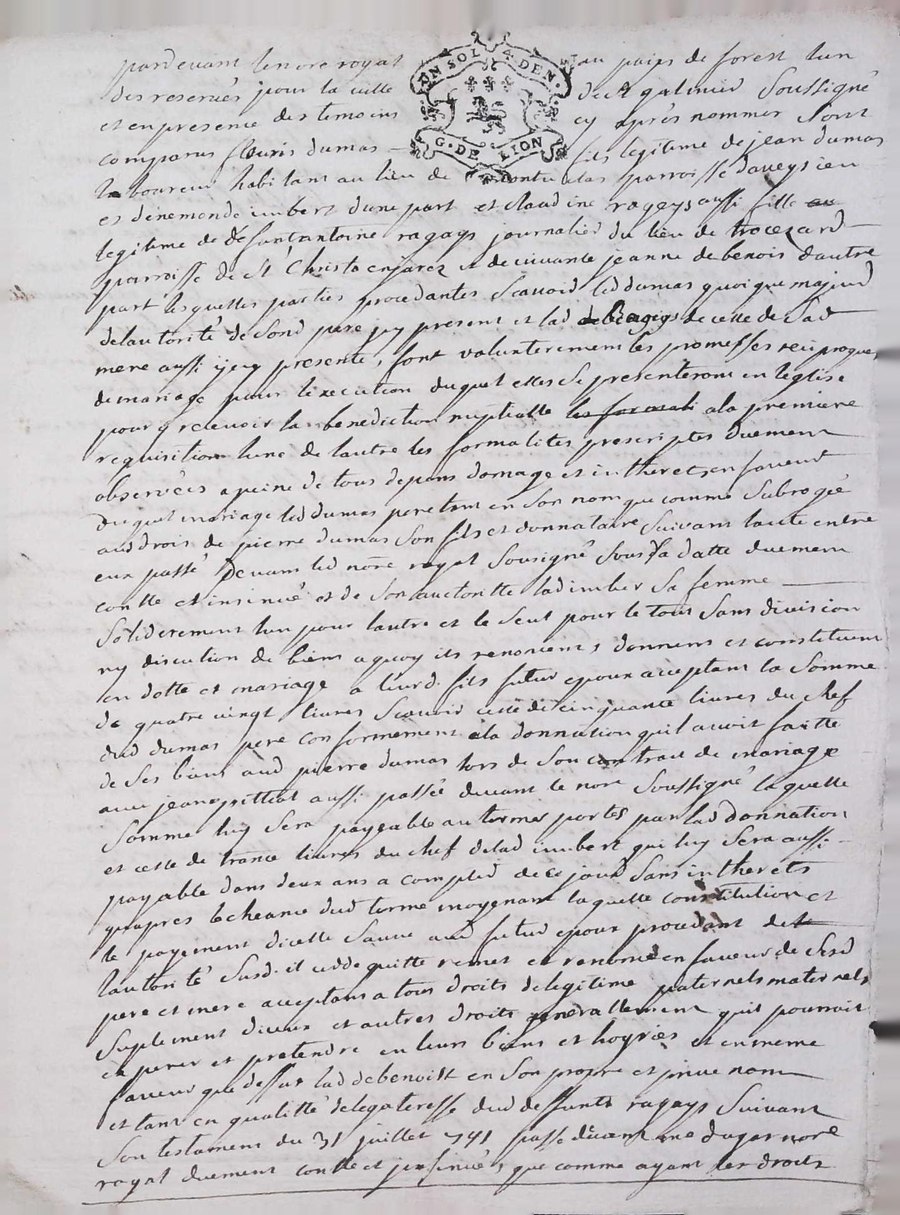 UN SOL 4 DEN.
G. DE LION
pardevant le nore royal au paiis de forest lun
des reservés pour la ville de St galmier Soussigné
et en presence des temoins cy après nommer Sont
comparus fleuris dumas fils legitime de jean dumas
laboureur habitant au lieu de parroisse daveysieu
et dénemonde imbert dune part et claudine ragays aussi fille au
legitime de deffunt antoine ragays journalier du lieu de trocezard
parroisse de St Christo en jarez et de vivante jeanne de benois dautre
part lesquelles parties procedantes Scavoir led dumas quoique majeur
de lautorité de Sond pere jcy present et lad de Ragays de celle de Sad
mere aussi jcy presente, font volonterement les promesses reciproques
de mariage pour lexecution duquel elles Se presenteront en léglise
pour y recevoir la benediction nuptialle les formali a la premiere
requisition lune de lautre les formalites prescriptes duement
observées a peine de tous depans domage et intherets, en faveur
duquel mariage led dumas pere tant en Son nom que comme Subrogé
aux drois de pierre dumas Son fils et donnataire Suivant lacte entre
eux passé devant led nore royal Sousigné Sous Sa datte duement
conlle et insinué et de Son auctorité lad imber Sa femme
Soliderement lun pour lautre et le Seul pour le tout Sans division
ny discution de biens a quoy ils renoncent, donnent et constituent
en dotte et mariage a leurd. fils futur epoux acceptant la Somme
de quatre vingt livres Scavoir celle de cinquante livres du chef
dud dumas pere conformement a la donnation quil avoit faitte
de Ses biens aud pierre dumas lors de Son contrat de mariage
avec jeane pittiot aussi passé devant le nore Soussigné laquelle
Somme luy Sera payable au termes portés par lad donnation
et celle de trante livres du chef de lad imbert qui luy Sera aussi
payable dans deux ans a compter de ce jour Sans intherets
quaprès lecheance dud terme moyenant laquelle constitution et
le payement dicelle Sauve aud futur epoux procedant de le
lautorité Susd. il cedde quitte remet et renonce en faveur de Sesd
pere et mere acceptans a tous droits de legitime paternels maternels
Suplement diceux et autres droits generallement quil pourroit
esperer et pretendre en leurs biens et hoyries et en meme
faveur que dessus lad de benoist en Son propre et privé nom
et tant en qualitté de legateresse dud deffunt ragays Suivant
Son testament du 31 juillet 741 passé devant me duguer nore
royal duement conlle et jnsinué, que comme ayant les droits